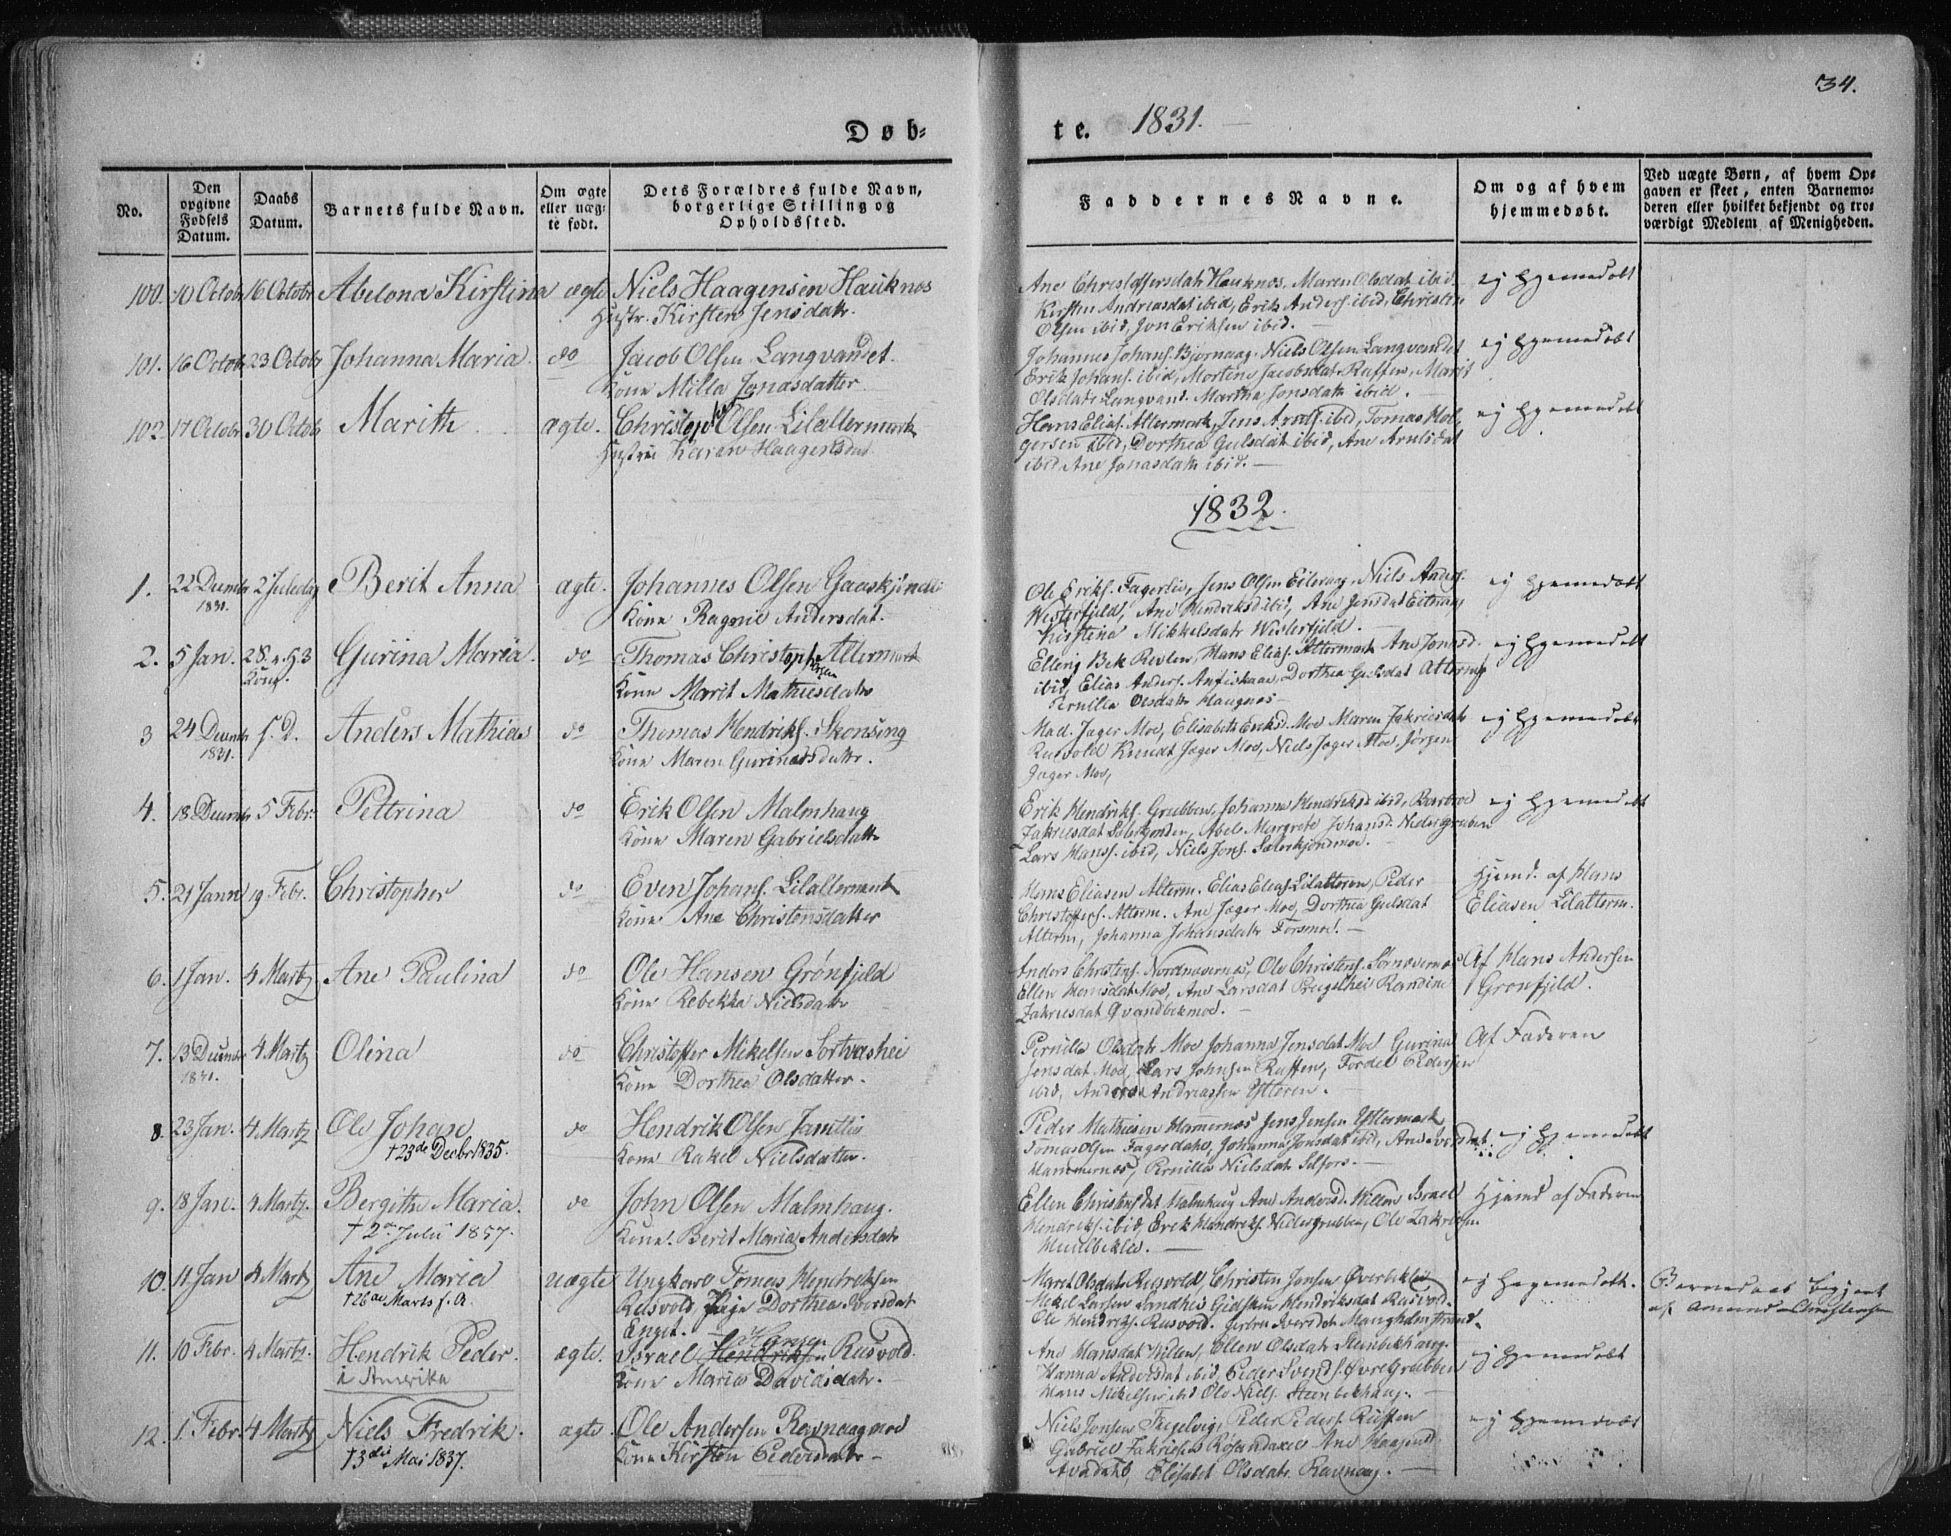 34.
Døb-
te. 1831.
No.
Den opgivne Fødsels Datum.
Daabs Datum.
Barnets fulde Navn.
Om ægte eller uægte født.
Dets Forældres fulde Navn, borgerlige Stilling og Opholdssted.
Faddernes Navne.
Om og af hvem hjemmedøbt.
Ved uægte Børn, af hvem Opgaven er skeet, enten Barnemoderen eller hvilket bekjendt og troværdigt Medlem af Menigheden.
100. 10 Octobr 16 Octobr Abelona Kirstina ægte Niels Haagensen Hauknæs
Hustr. Kirsten Jensdatr.
Ane Christofersdatr Hauknæs, Maren Olsdat ibid
Kirsten Andreasdat ibid, Erik Anders. ibid, Christen
Olsen ibid, Jon Eriksen ibid.
ej hjemmedøbt
101. 16 Octobr 23 Octobr Johanna Maria do Jacob Olsen Langvandet
Kone Milla Jonasdatter
Johannes Johans. Bjørnaag, Niels Olsen Langvandet
Erik Johans. ibid, Mortine Jacobsdat Røffen, Marit
Olsdatr Langvand. Martha Jonsdatr ibid.
ej hjemmedøbt
102. 17 Octobr 30 Octob Marith ægte. Christoph Olsen Lilaltermark
Hustrue Karen Haagensdat
Hans Elias. Altermark, Jens Arnts. ibid, Tomas Hol-
gersen ibid, Dorthea Gulsdat ibid, Ane Arntsdat
ibid Ane Jonasdatr ibid.
ej hjemmedøbt
1832.
1. 22 Decembr 1831. 2 Juledag Berit Anna ægte. Johannes Olsen Gaaskjønlie
Kone Ragnil Andersdat.
Ole Eriks. Fagerlie, Jens Olsen Eiteraag, Niels Anders.
Westerfjeld, Ane Hendriksd ibid, Ane Jensdat Eiteraag
Kirstina Mikkelsdatr Westerfjeld.
ej hjemmedøbt
2. 5 Jan. 28. Gurina Maria. do Thomas Christophersen Altermark
Kone Marit Mathiesdatr
Ellerij Bek Revlen, Hans Elias. Altermark Ane Jonasd.
ibid, Elias Anders. Dorthea Gulsdat
Pernille Olsdatr Haugnæs
ej hjemmedøbt
3 24 Decembr 1831. s. D. Anders Mathias do Thomas Hendriks. Skonseng
Kone Maren Gurinædsdattr.
Mad. Jæger Moe, Elisabeth Eriksd. Moe Maren Zakriesdatr
Rusvold Knudt Jæger Moe, Niels Jæger Moe, Jørgen
Jæger Moe,
ej hjemmedøbt
4. 18 Decembr 5 Febr. Pettrina do Erik Olsen Malmhaug
Kone Maren Gabrielsdattr
Erik Hendriks. Grubben, Johanna Hendriksd ibid, Barbroe
Zakriesdat Abel Margrete Johansd. Nidergruben
Lars Hans. ibid, Niels Jons.
ej hjemmedøbt
5. 21 Jann 19 Febr. Christopher do Even Johans. Lilaltermark
Kone Ane Christensdatter
Hans Eliasen Alterm. Elias Elias. Lilalteren, Peder
Christoffers. Alterm. Ane Jæger Moe, Dorthea Gulsdat
Alterm, Johanna Johansdatr Forsmoe.
Hjemd. af Hans
Eliasen Lilalterm.
6. 1 Jan. 4 Martz Ane Paulina do Ole Hansen Grønfjeld
Kone Rebekka Nielsdatr
Anders Christens. Nordnæsernæs, Ole Christens. Sørnæsernæs
Ellen Hansdat Moe, Ane Larsdat Randine
Zakriesdat Qvandbekmoe.
Af Hans Andersen
Grønfjeld.
7. 13 Decembr 1831. 4 Martz Olina do Christoffer Mikelsen Sortvashei
Kone Dorthea Olsdatter.
Pernilla Olsdatr Moe Johanna Jensdat Moe Gurina
Jensdat Moe, Lars Johnsen Røffen, Fordel Pedersen
ibid, Anders Andreassen Ytteren.
Af Faderen
8. 23 Jan. 4 Martz Ole Johan do Hendrik Olsen Jamtlie
†23de Decbr 1835.
Kone Rakel Nielsdatter.
Peder Mathiesen Hammernæs Jens Jensen Yttermark
Tomas Olsen Fagerdahl, Johanna Jonsdat ibid, Ane Iversdat
Hammernæs, Pernilla Nielsdat Selfors.
ej hjemmedøbt
9. 18 Jan. 4 Martz. Bergithe Maria. do John Olsen Malmhaug.
† 2 Julii 1857.
Kone. Berit Maria Andersdatr
Ellen Christensdat Malmhaug Ane Andersd. Willen Israel
Hendriks. ibid, Erik Hendriks. Nidergrubben, Ole Zakriesen
Hjemd af Faderen
10. 11 Jan 4 Martz Ane Maria uægte Ungkarl Tomas Hendriksen
†26de Marts s. A.
Rusvold, Pige Dorthea Iversdat
Enget.
Maret Olsdat Rusvold, Christen Jonsen Øverbeklie
Mikel Larsen Sandhei Gidsken Hendriksdat Rusvold.
Ole Hendriks. Rusvold.
ej hjemmedøbt.
11. 10 Febr. 4 Martz. Hendrik Peder. ægte. Israel Hendriksen Hansen Rusvold.
i Amerika
Kone Maria Davidsdatr.
Ane Hansdat Willen, Ellen Olsdat Stenbekhaug
Hanna Andersdat ibid, Peder Svends. ØvreGrubben
Hans Mikelsen ibid Ole Niels. Steenbekhaug.
ej hjemmedøbt
12. 1 Febr 4 Martz Niels Fredrik. ægte. Ole Andersen Ravnaagmoe
†3die Mai 1837.
Kone Kirsten Pedersdatr
Niels Jonsen Peder Peders. Røffen
Gabriel Zakriesen Ane Haagensd.
Elisabet Olsdatr Ravnaag.
ej hjemmedøbt